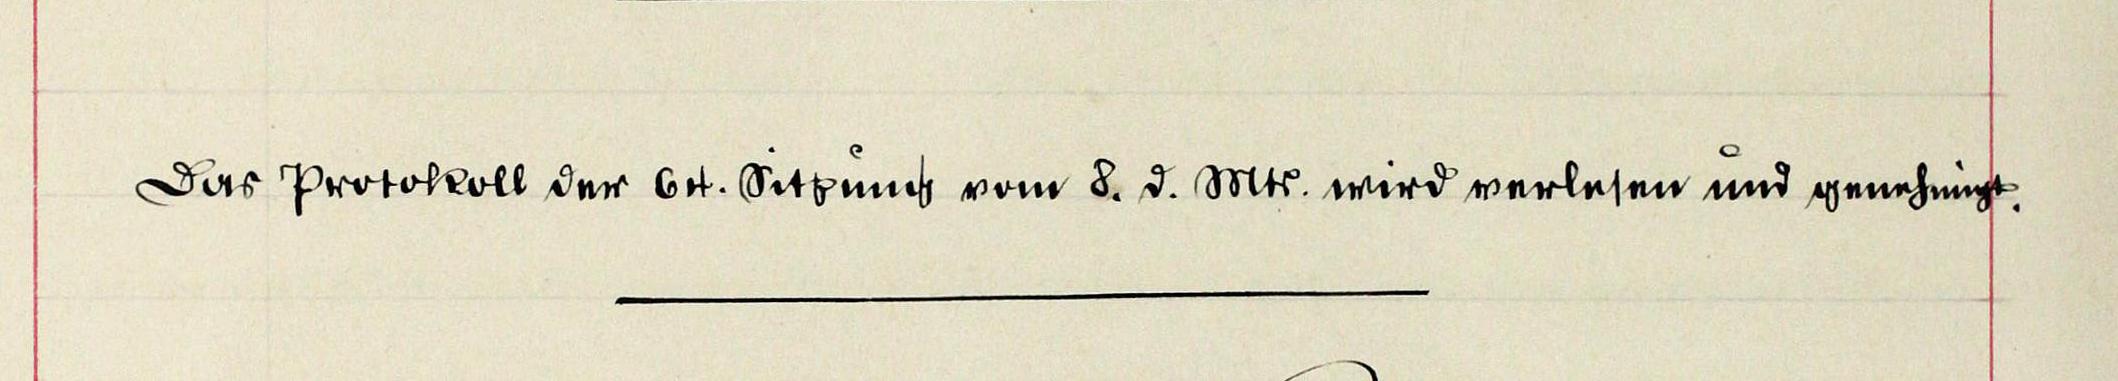 Das Protokoll der 64. Sitzung vom 8. d. Mts. wird verlesen und genehmigt.